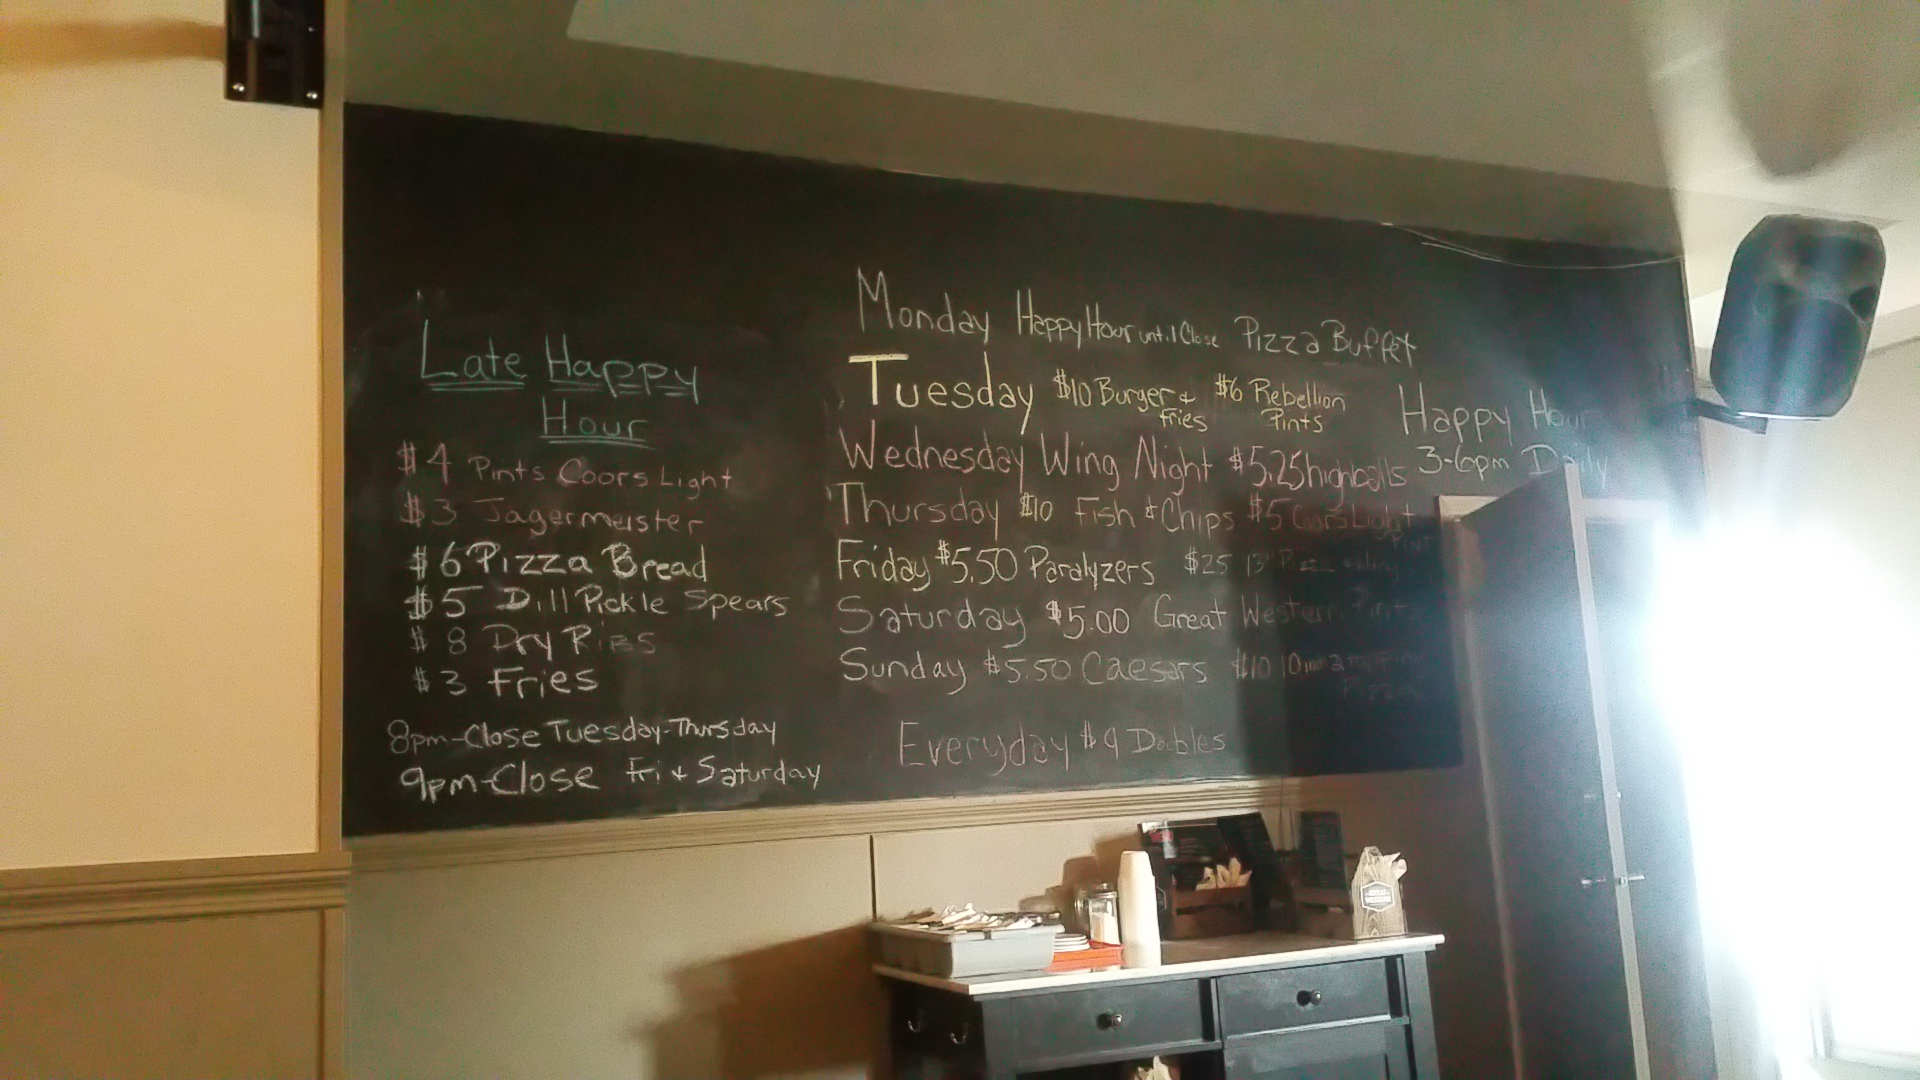 Late Happy
Hour
$4 Pints Coors Light
$3 Jagermeister
$6 Pizza Bread
$5 Dill Pickle Spears
$8 Dry Ribs
$3 Fries
8pm-Close Tuesday-Thursday
9pm-Close Fri & Saturday
Monday Happy Hour until Close Pizza Buffet
Tuesday $10 Burger & $6 Rebellion
Fries Pints
Wednesday Wing Night $5.25 highballs
Thursday $10 Fish & Chips $5 Coors Light
Pint
Friday $5.50 Paralyzers $25 13"
Saturday $5.00 Great Western Pints
Sunday $5.50 Caesars $10 10in
Pizza
Everyday $9 Doubles
Happy Hour
3-6pm Daily
GREAT
WESTERN